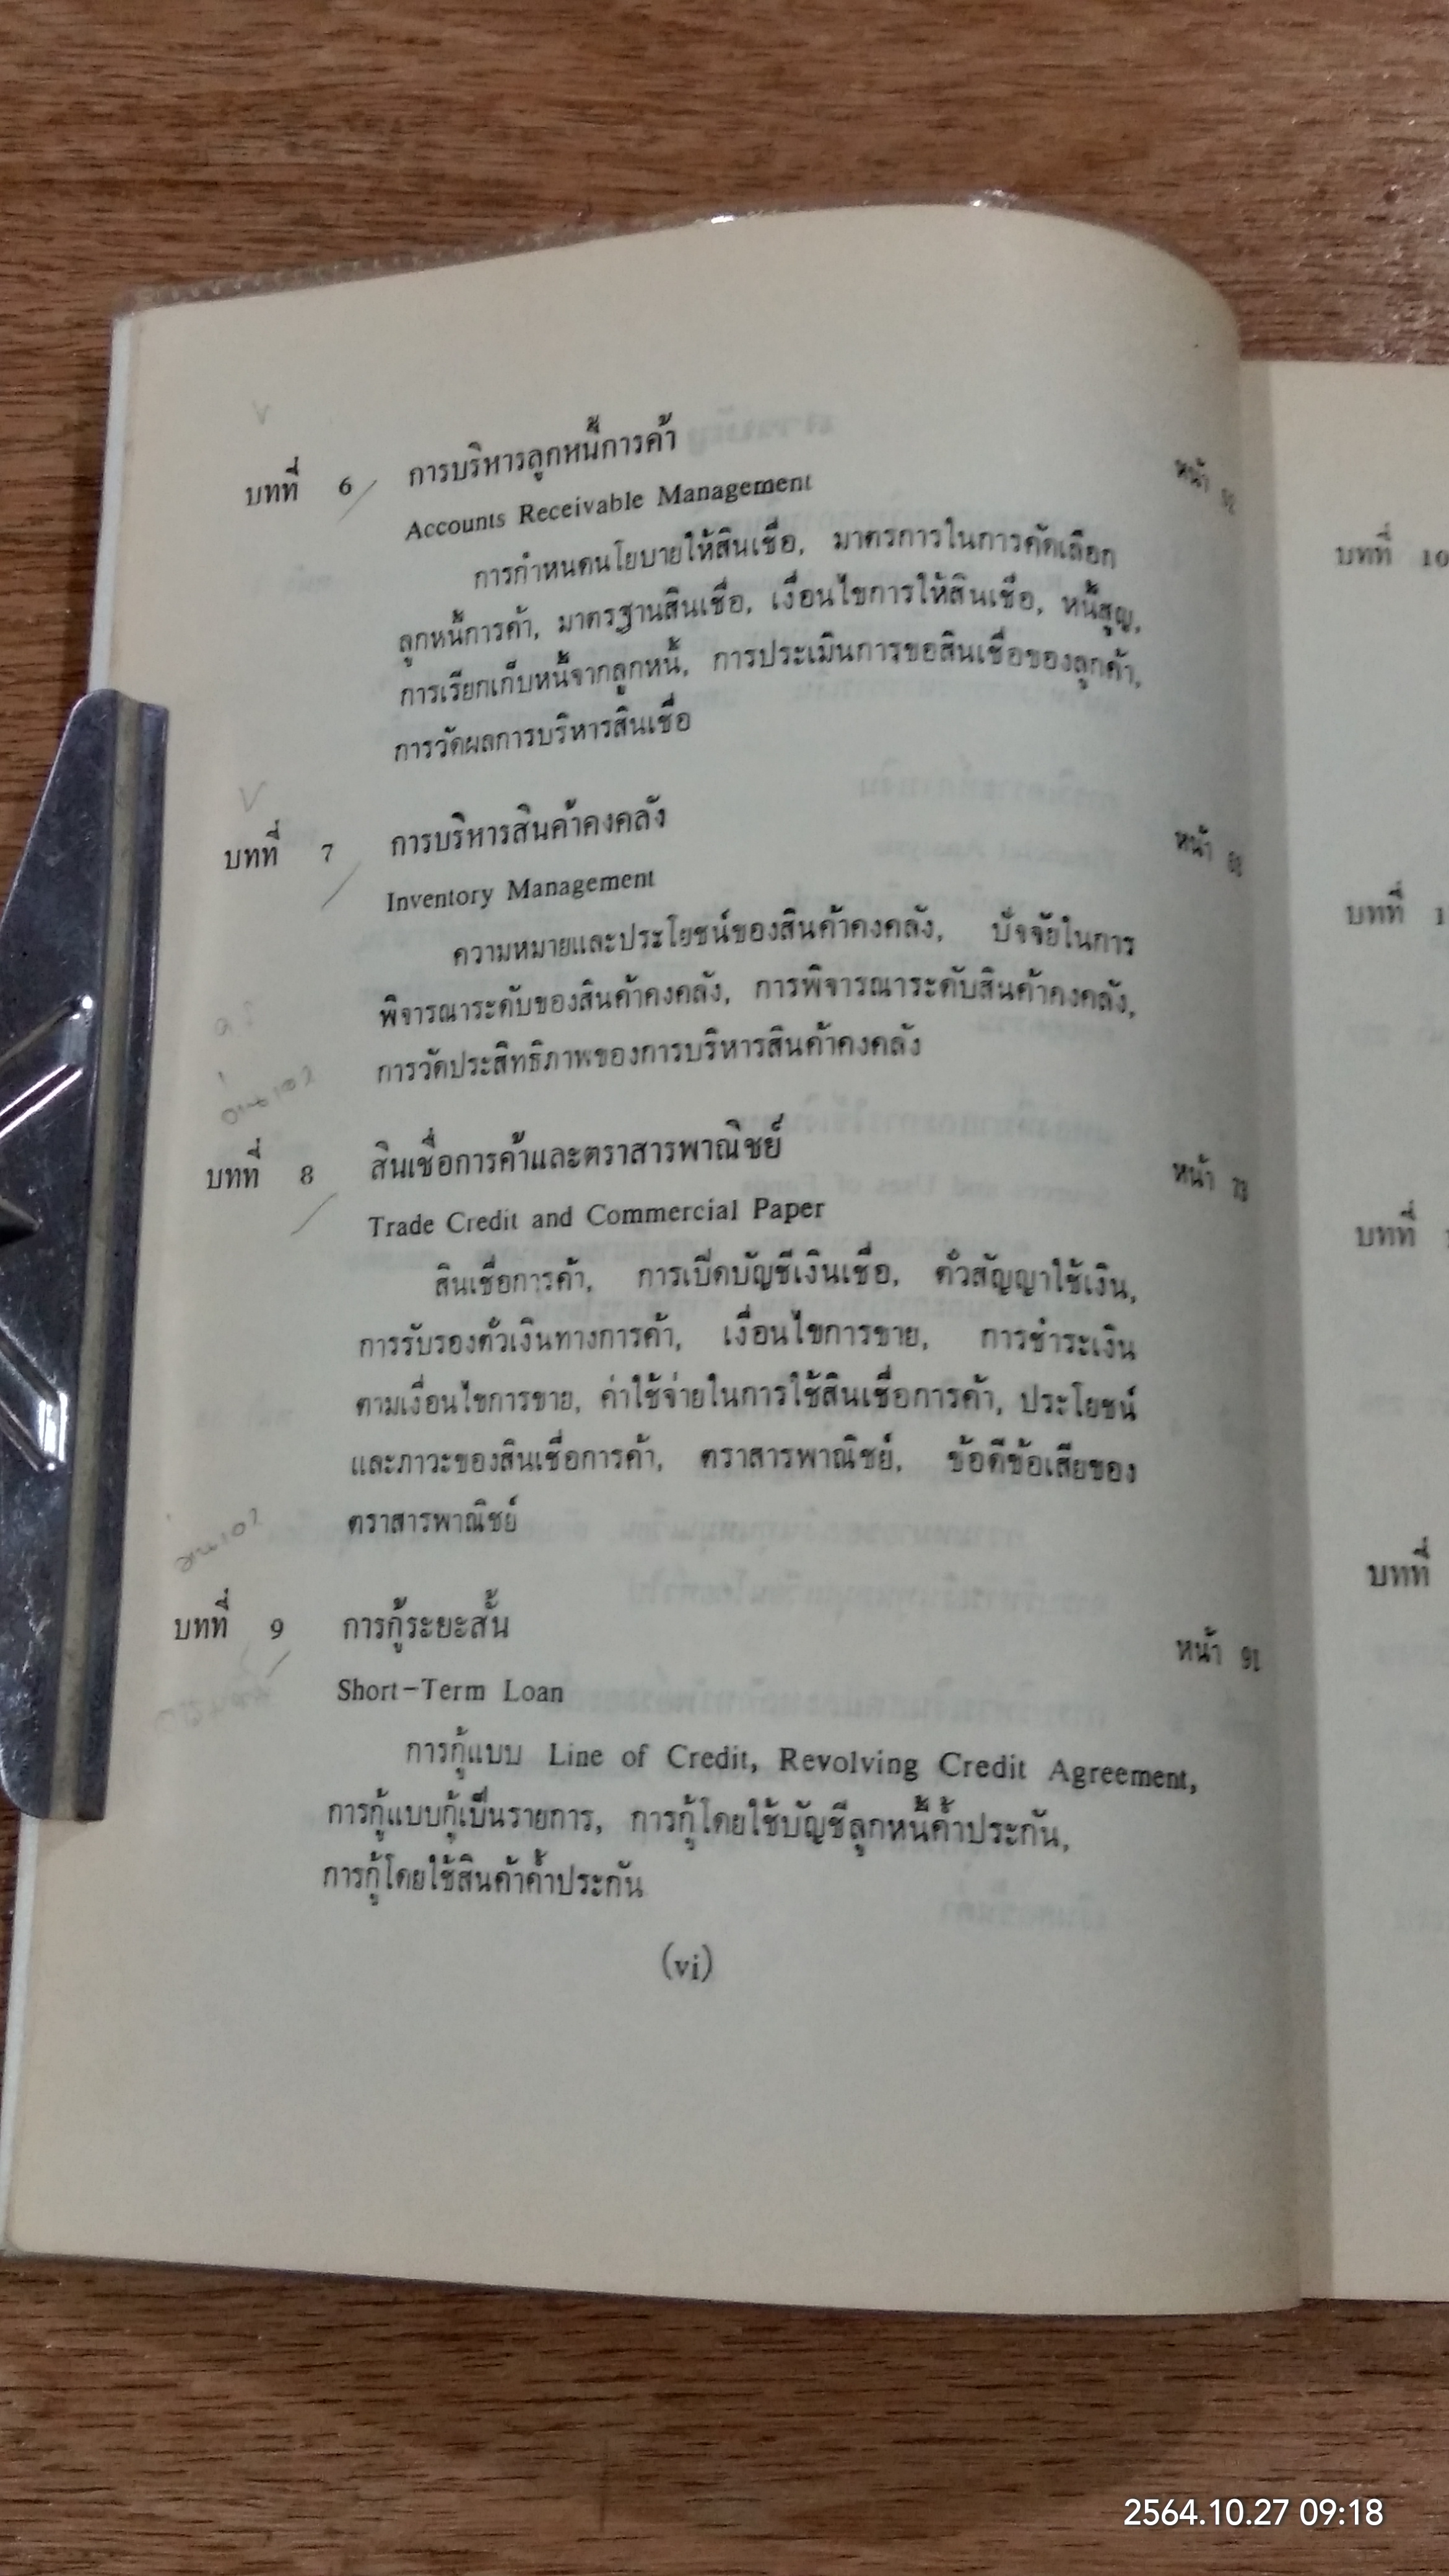 บทที่ 6 การบริหารลูกหนี้การค้า หน้า
Accounts Receivable Management
การกำหนดนโยบายให้สินเชื่อ, มาตรการในการคัดเลือก
ลูกหนี้การค้า, มาตรฐานสินเชื่อ, เงื่อนไขการให้สินเชื่อ, หนี้สูญ,
การเรียกเก็บหนี้จากลูกหนี้, การประเมินการขอสินเชื่อของลูกค้า,
การวัดผลการบริหารสินเชื่อ
บทที่ 7 การบริหารสินค้าคงคลัง หน้า
Inventory Management
ความหมายและประโยชน์ของสินค้าคงคลัง, ปัจจัยในการ
พิจารณาระดับของสินค้าคงคลัง, การพิจารณาระดับสินค้าคงคลัง,
การวัดประสิทธิภาพของการบริหารสินค้าคงคลัง
บทที่ 8 สินเชื่อการค้าและตราสารพาณิชย์ หน้า 73
Trade Credit and Commercial Paper
สินเชื่อการค้า, การเปิดบัญชีเงินเชื่อ, ตั๋วสัญญาใช้เงิน,
การรับรองตั๋วเงินทางการค้า, เงื่อนไขการขาย, การชำระเงิน
ตามเงื่อนไขการขาย, ค่าใช้จ่ายในการใช้สินเชื่อการค้า, ประโยชน์
และภาวะของสินเชื่อการค้า, ตราสารพาณิชย์, ข้อดีข้อเสียของ
ตราสารพาณิชย์
บทที่ 9 การกู้ระยะสั้น หน้า 91
Short-Term Loan
การกู้แบบ Line of Credit, Revolving Credit Agreement,
การกู้แบบกู้เป็นรายการ, การกู้โดยใช้บัญชีลูกหนี้ค้ำประกัน,
การกู้โดยใช้สินค้าค้ำประกัน
(vi)
บทที่ 10
บทที่ 1
บทที่
บทที่
2564.10.27 09:18